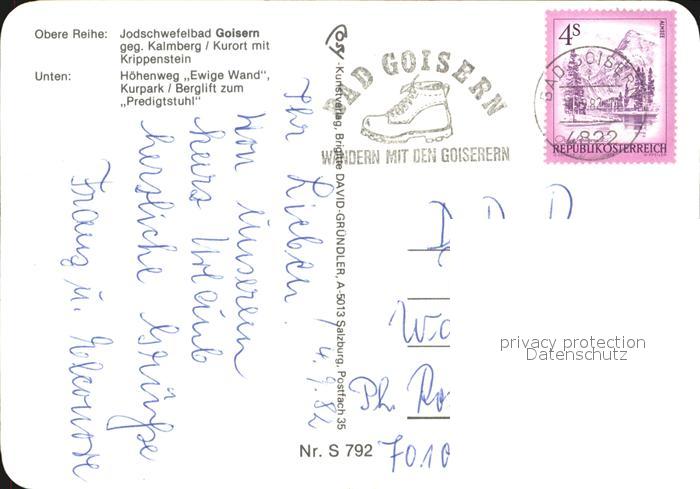 Obere Reihe: Jodschwefelbad Goisern
geg. Kalmberg / Kurort mit
Krippenstein
Unten: Höhenweg „Ewige Wand",
Kurpark / Berglift zum
„Predigtstuhl"
Cosy-Kunstverlag, Brigitte DAVID-GRÜNDLER, A-5013 Salzburg, Postfach 35
BAD GOISERN
WANDERN MIT DEN GOISERERN
4S
ALMSEE
REPUBLIK ÖSTERREICH
BAD GOISERN
4822
4.9.82
Ihr Lieben!
Von unserem
kurs Urlaub
herzliche Grüße
Franz u.
D D D
Ph.
7010
Nr. S 792
privacy protection
Datenschutz